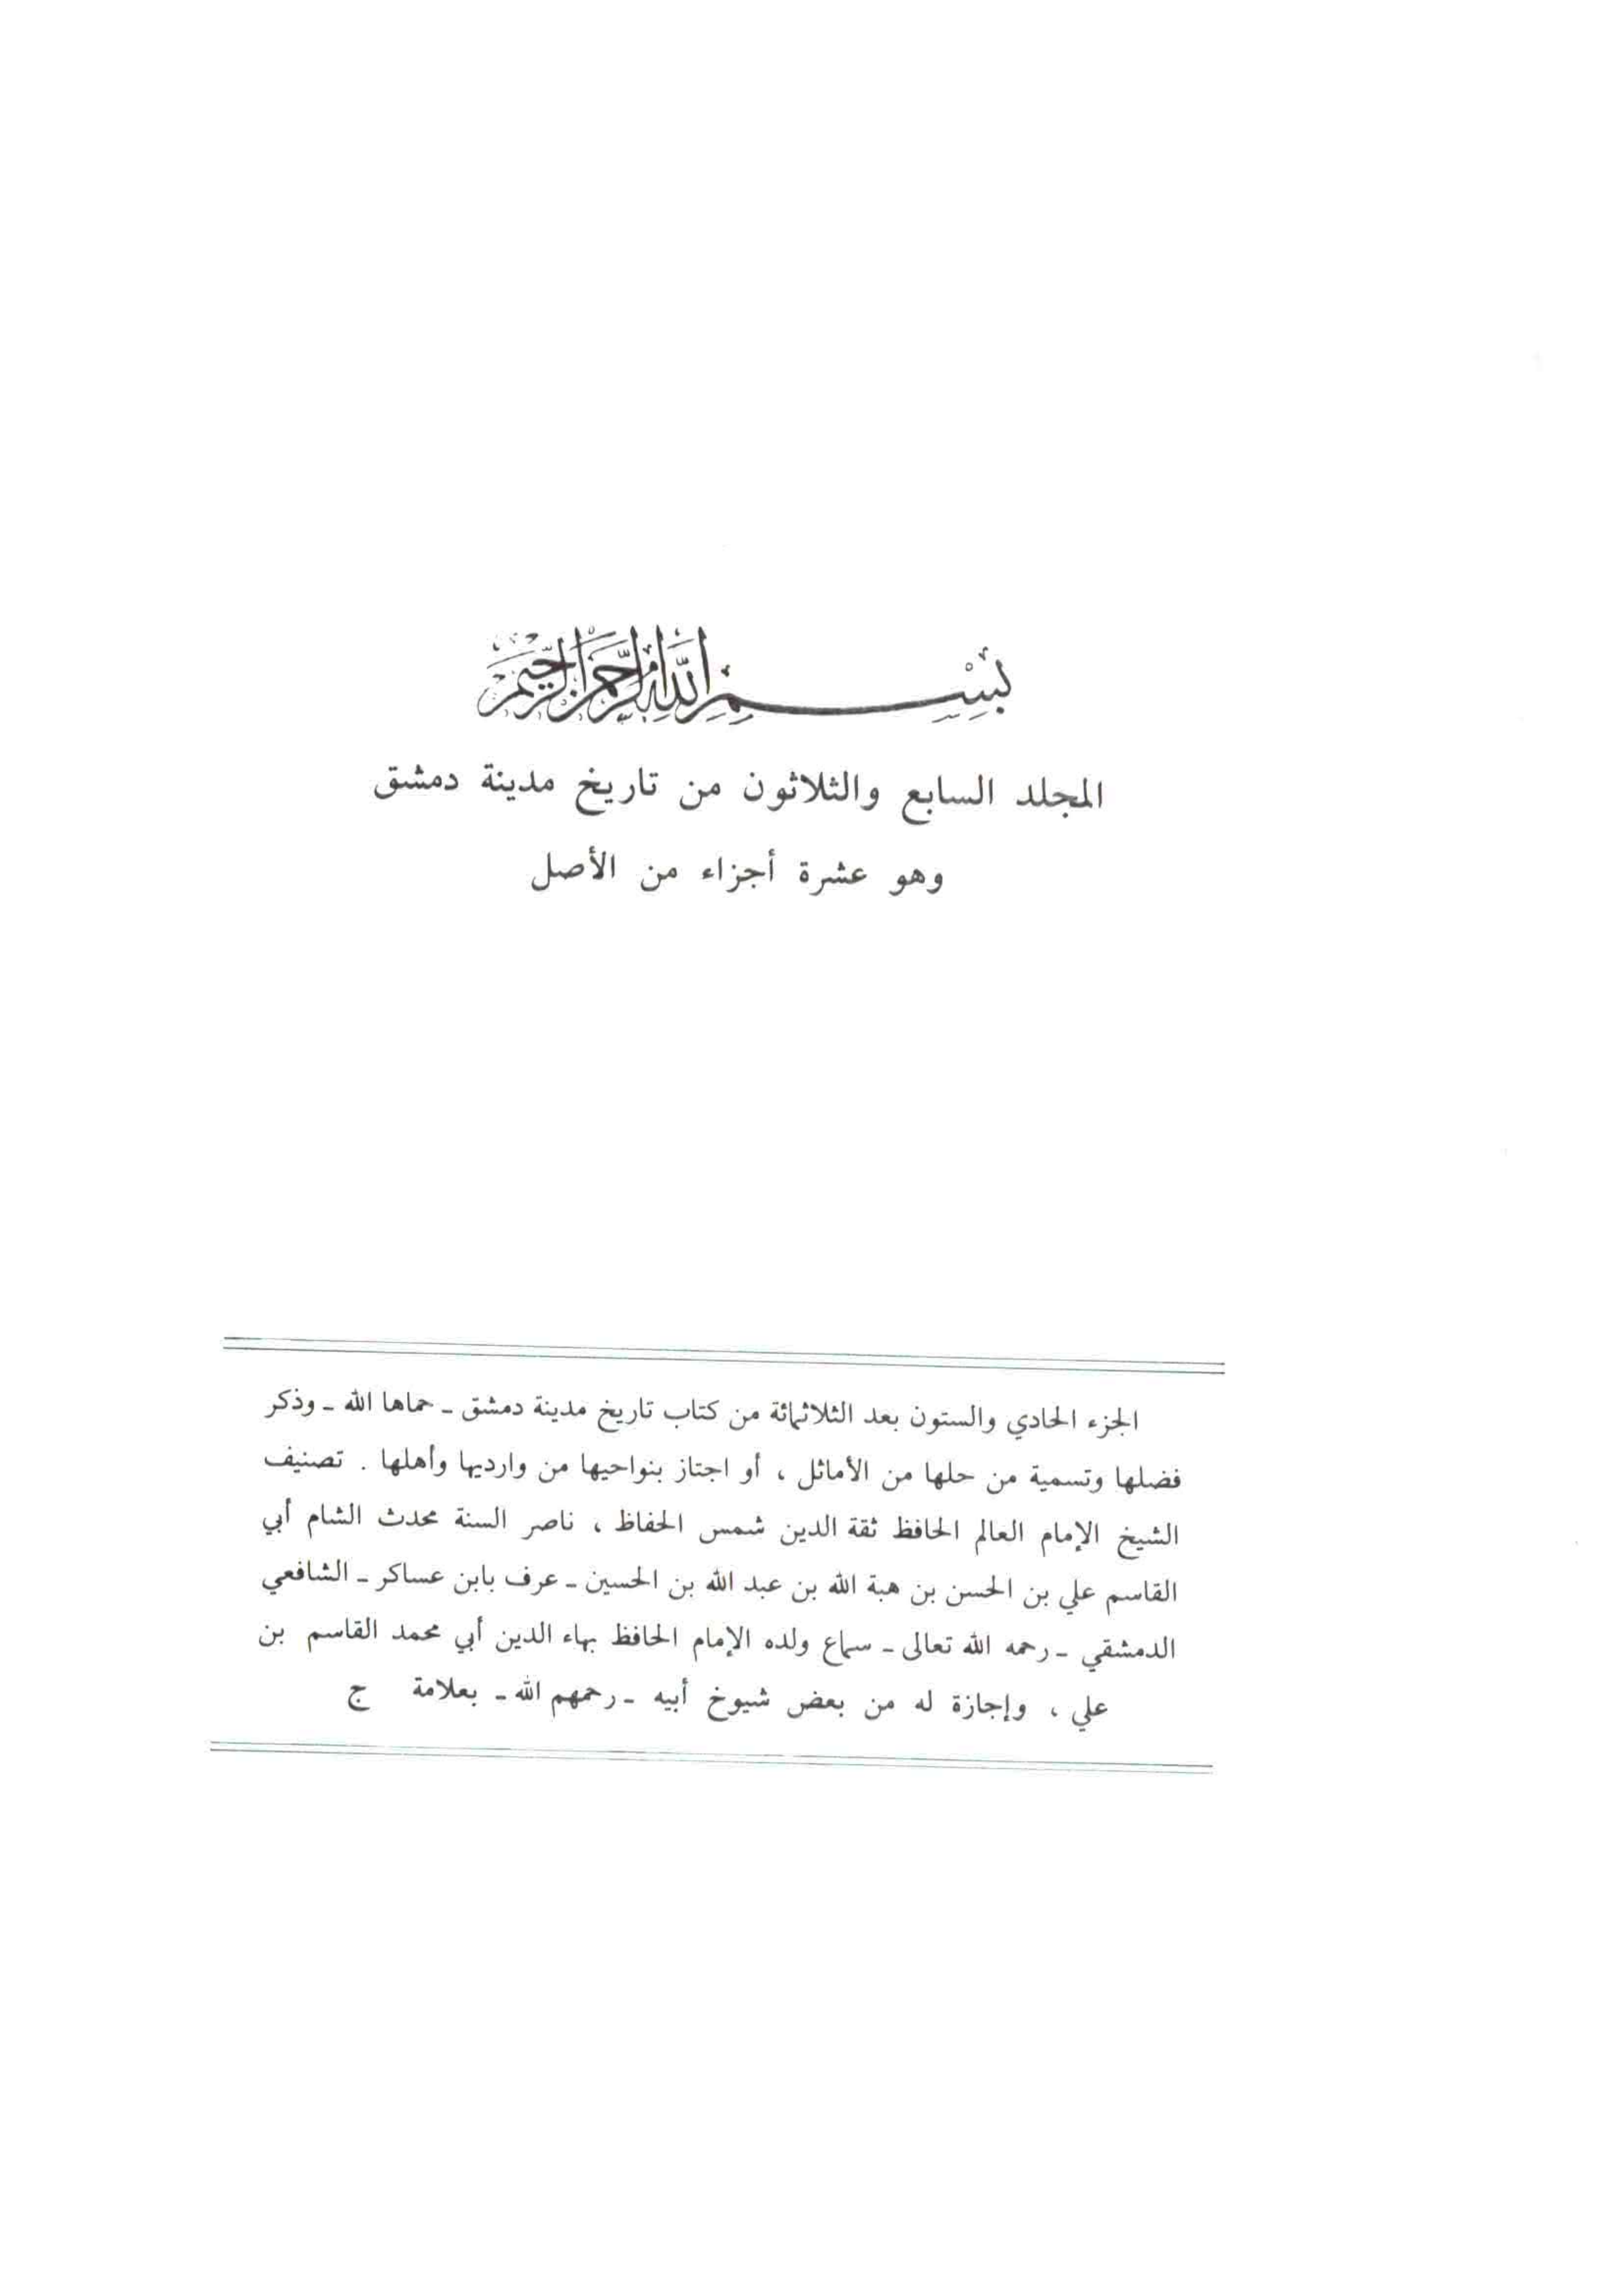 بسم الله الرحمن الرحيم
المجلد السابع والثلاثون من تاريخ مدينة دمشق
وهو عشرة أجزاء من الأصل
الجزء الحادي والستون بعد الثلاثمائة من كتاب تاريخ مدينة دمشق ـ حماها الله ـ وذكر
فضلها وتسمية من حلها من الأماثل ، أو اجتاز بنواحيها من وارديها وأهلها . تصنيف
الشيخ الإمام العالم الحافظ ثقة الدين شمس الحفاظ ، ناصر السنة محدث الشام أبي
القاسم علي بن الحسن بن هبة الله بن عبد الله بن الحسين ـ عرف بابن عساكر ـ الشافعي
الدمشقي ـ رحمه الله تعالى ـ سماع ولده الإمام الحافظ بهاء الدين أبي محمد القاسم بن
علي ، وإجازة له من بعض شيوخ أبيه ـ رحمهم الله ـ بعلامة ج